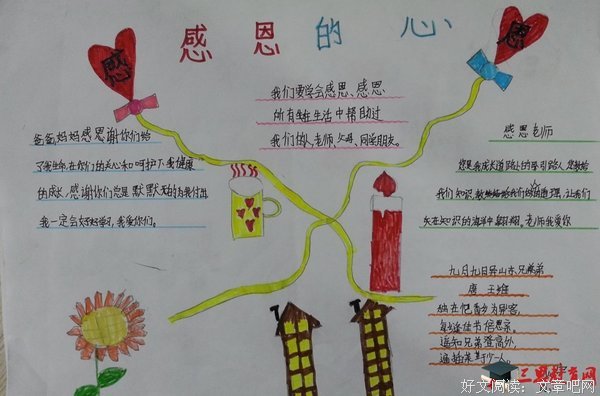 感恩的心
感
恩
我们要学会感恩、感恩
所有在生活中帮助过
我们的人,老师、父母、同学朋友。
爸爸妈妈感恩谢你们给
了我生命,在你们的关心和呵护下我健康
的成长,感谢你们总是默默无的为我付出
我一定会好好学习,我爱你们。
感恩老师
您是我成长道路上的导引路人,您教给
我们知识,教给我们的道理,让我们
天在知识的海洋中翱翔。老师我爱你
九月九日异山东兄弟
唐 王维
独在他乡为异客,
每逢佳节倍思亲。
遥知兄弟登高外,
遍插茱萸少一人。
三思教育网
好文阅读:文章吧网